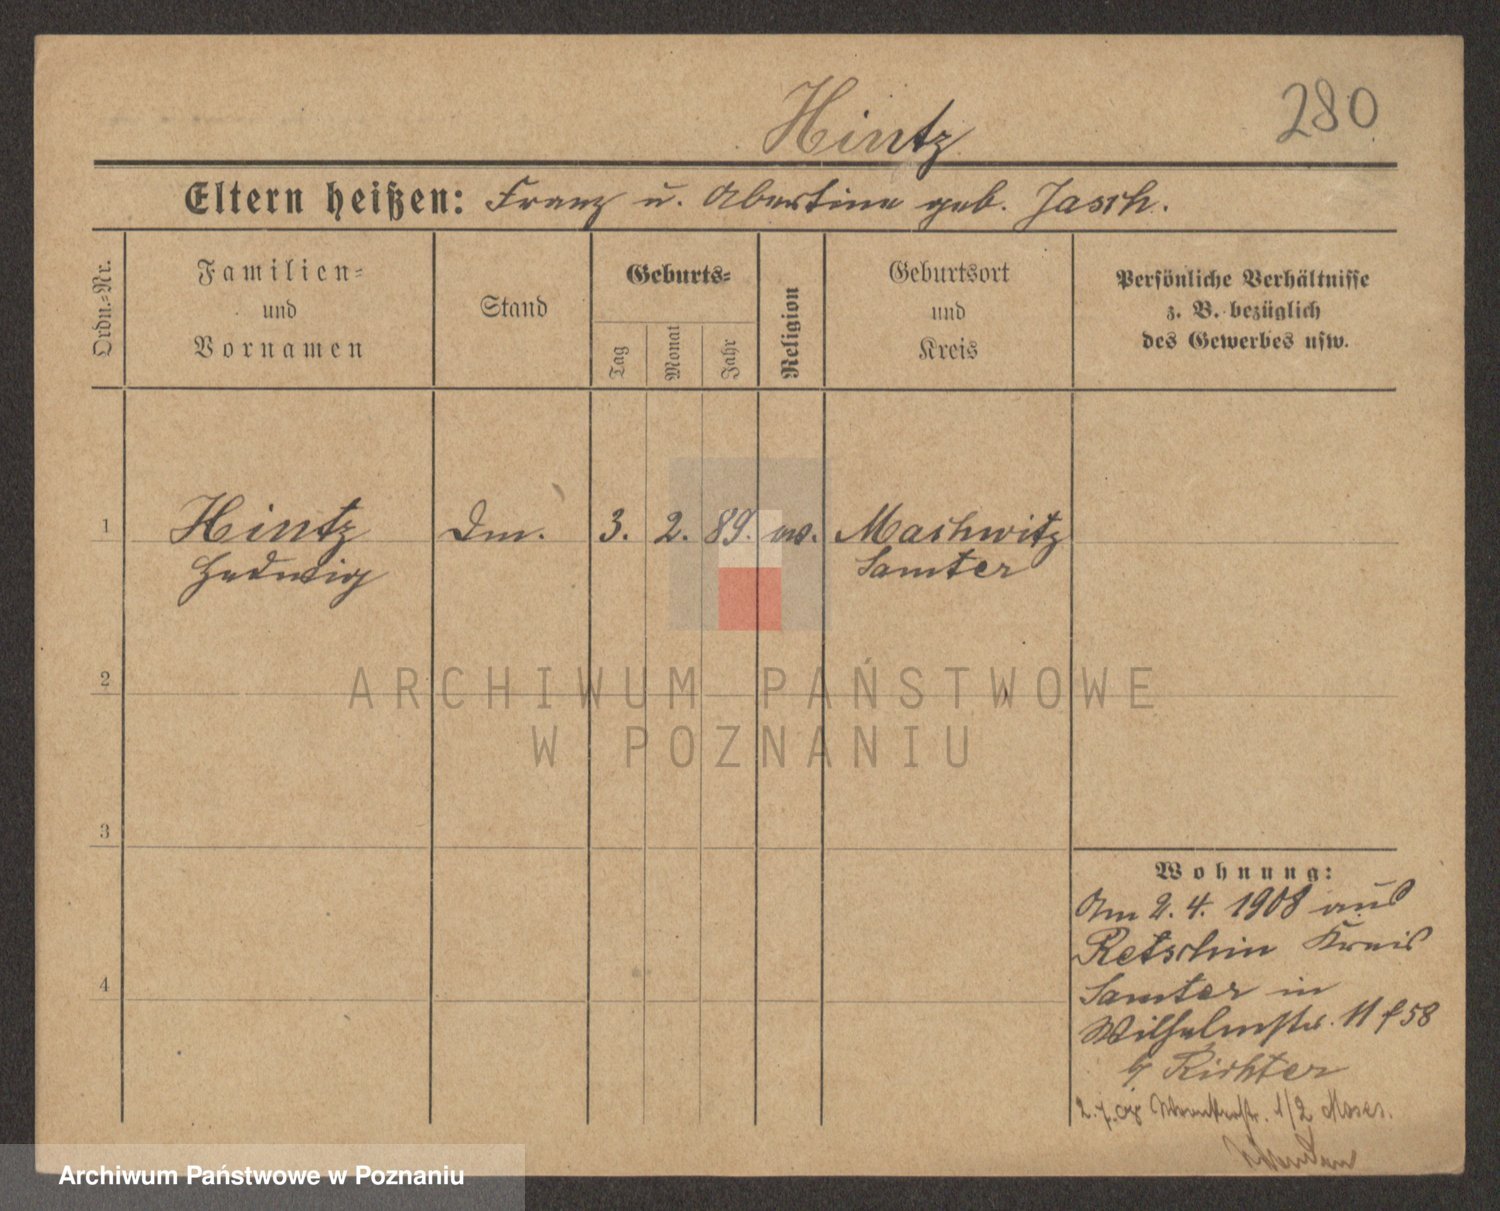 280
Hintz
Eltern heißen: Franz u. Abertine geb. Jasch.
Ordn.-Nr.
Familien- und Vornamen
Stand
Geburts-
Tag
Monat
Jahr
Religion
Geburtsort und Kreis
Persönliche Verhältnisse
z. B. bezüglich
des Gewerbes usw.
1 Hintz Dm. 3. 2. 89. ev. Maschwitz
Hedwig Samter
2
ARCHIWUM PAŃSTWOWE
W POZNANIU
3
Wohnung:
Am 2. 4. 1908 aus
Retschin Kreis
4
Samter in
Wilhelmstr. 11 f 58
b/ Richter
2. 7. 08 1/2 Moses.
Archiwum Państwowe w Poznaniu